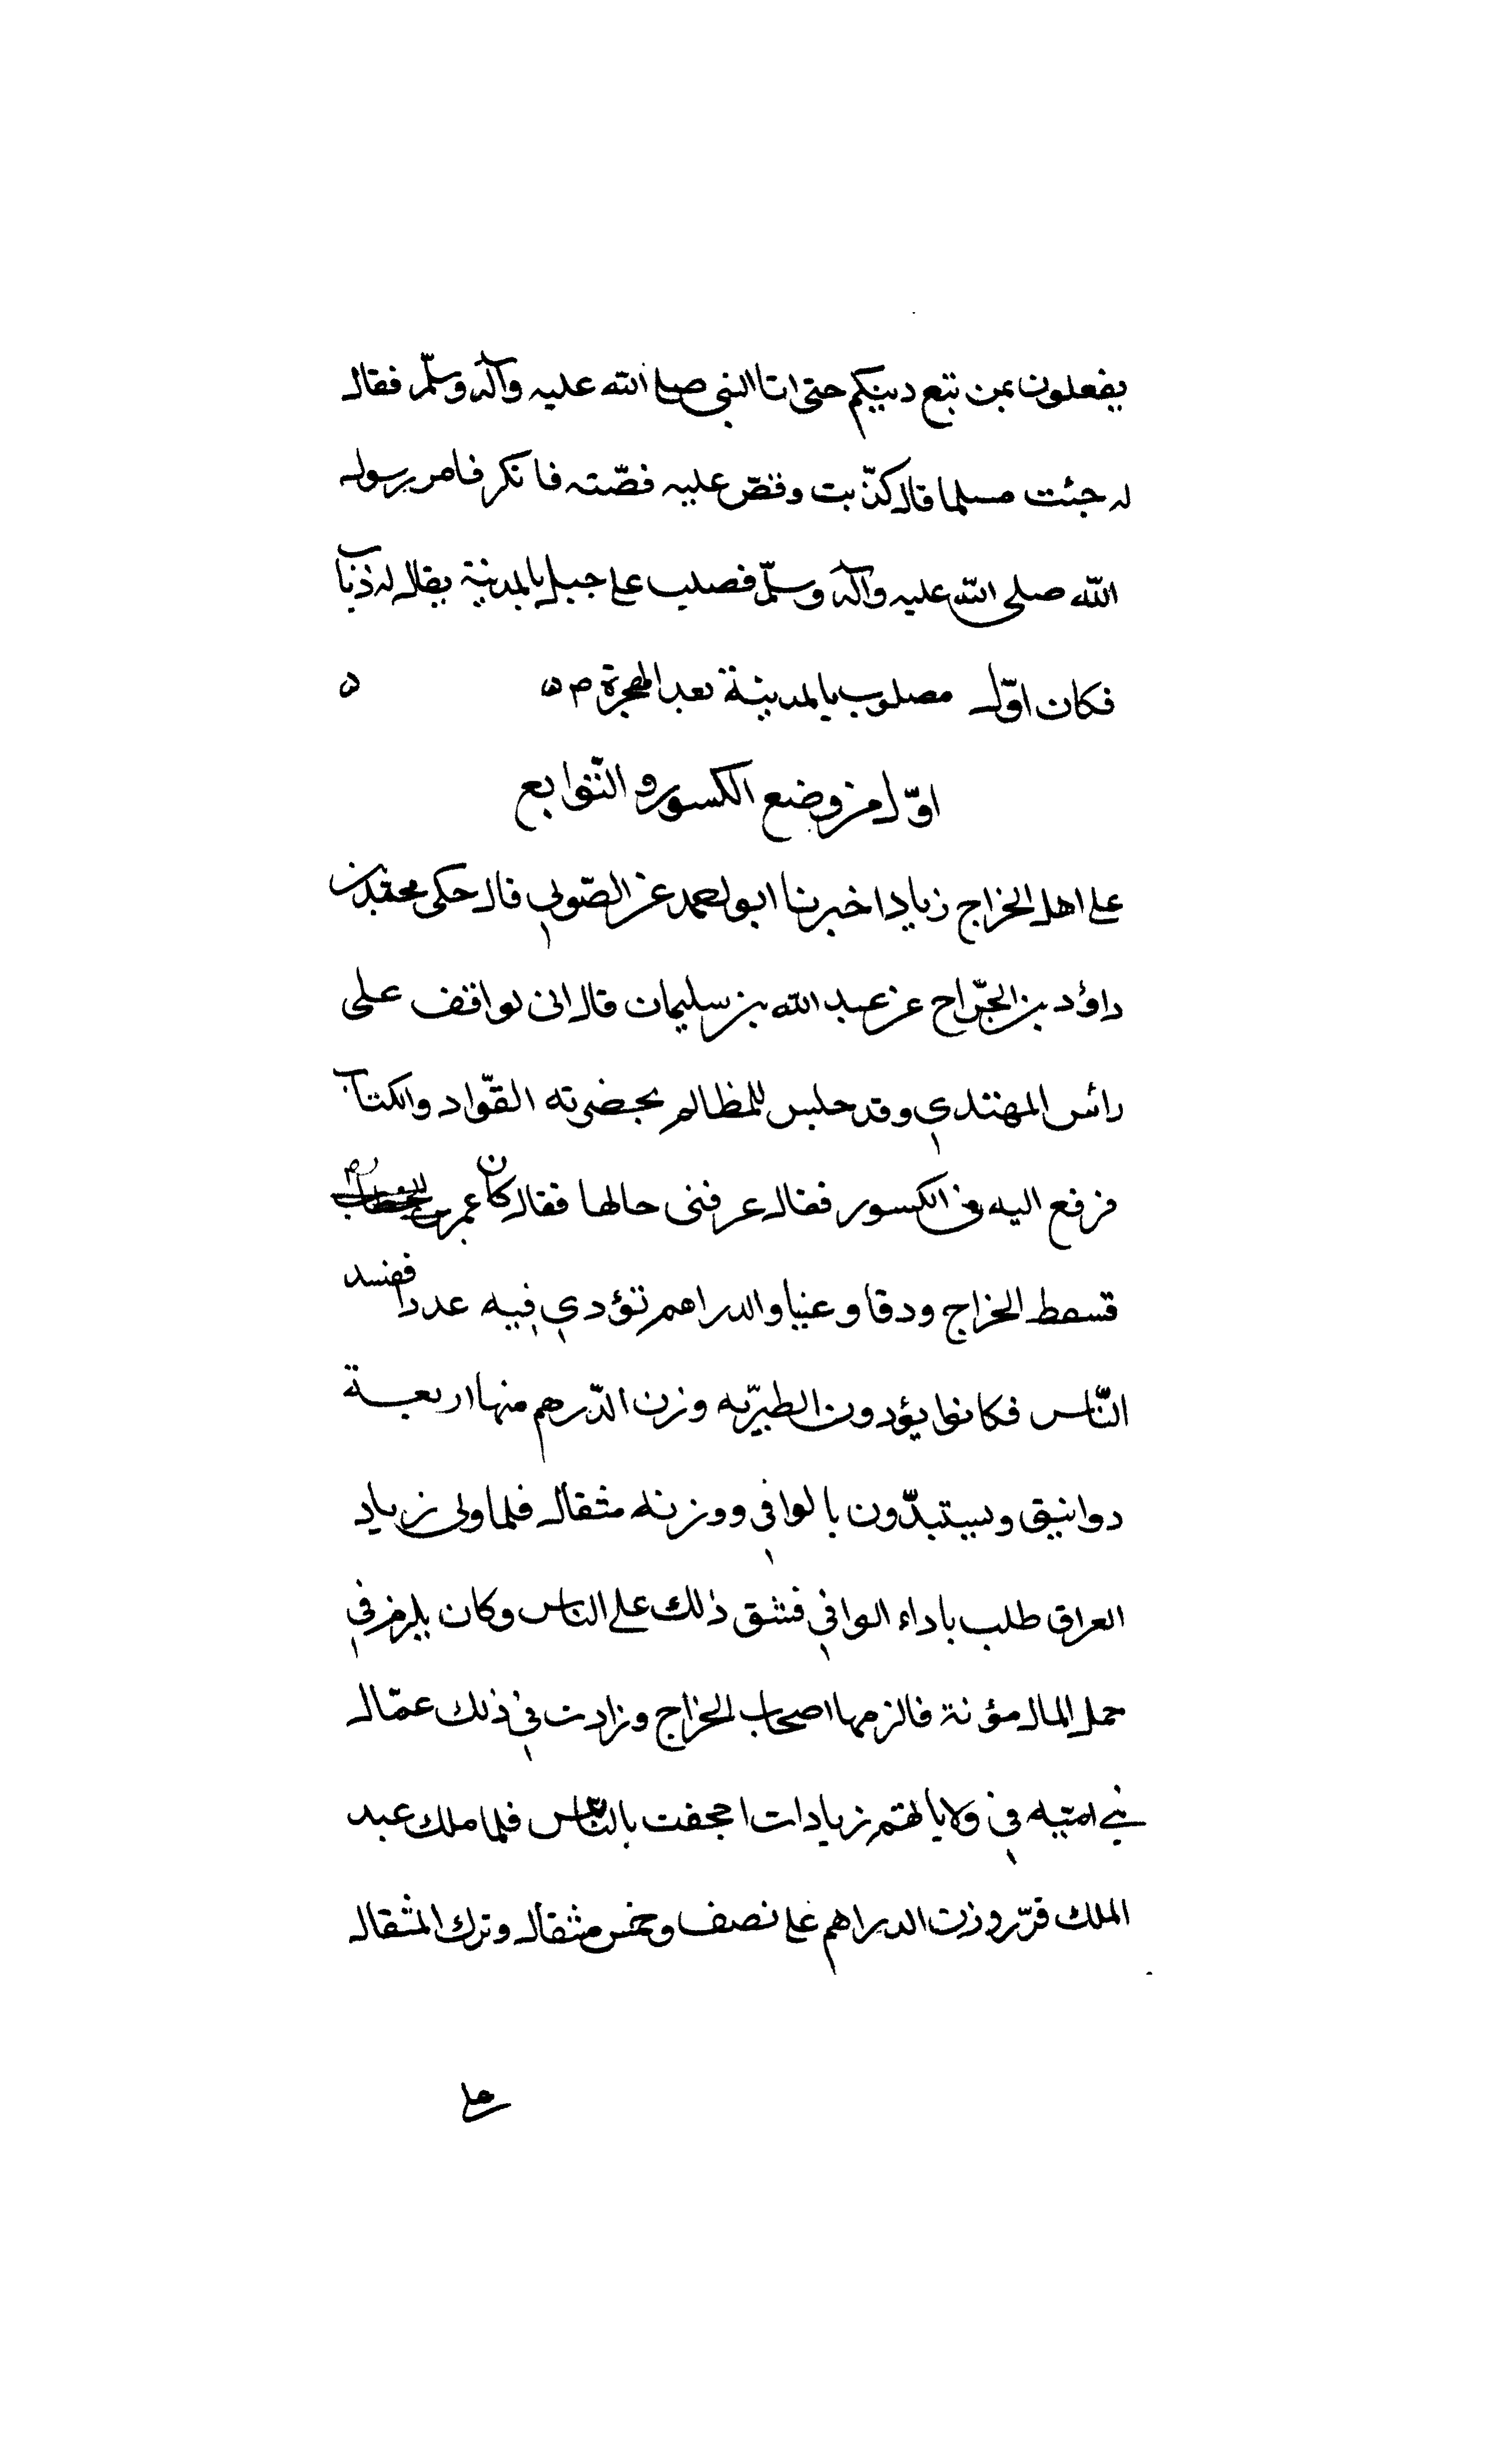 يفعلون بمن تبع دينكم حتى اتا النبى صلى الله عليه وآله وسلّم فقال
له جئت مسلما قال كذبت وقصّ عليه قصّته فانكر فامر رسول
الله صلى الله عليه وآله وسلّم فصلب على جبل بالمدينة يقال له ذباب
فكان اوّل مصلوب بالمدينة بعد الهجرة
اوّل من وضع الكسور والتّوابع
على اهل الخراج زياد اخبرنا ابو احمد عن الصّولي قال حكى محمد بن
داؤد بن الجرّاح عن عبد الله بن سليمان قال انى لواقف على
رائس المهتدي وقد جلس للمظالم بحضرته القوّاد والكتاب
فرفع اليه فى الكسور فقال عرفنى حالها فقال كان عمر بن الخطاب
قسط الخراج ورقا وعينا والدراهم تؤدي فيه عددا ففسد
النّاس فكانوا يؤدون الطبريّه وزن الدّرهم منها اربعة
دوانيق ويستبدّون بالوافي ووزنه مثقال فلما ولى زياد
العراق طلب باداء الوافي فشق ذلك على الناس وكان يلزم في
حمل المال مؤنة فالزمها اصحاب الخراج وزادت في ذلك عمّال
بني اميّه في ولاياتهم زيادات اجحفت بالنّاس فلما ملك عبد
الملك قرّر وزن الدراهم على نصف وخمس مثقال وترك المثقال